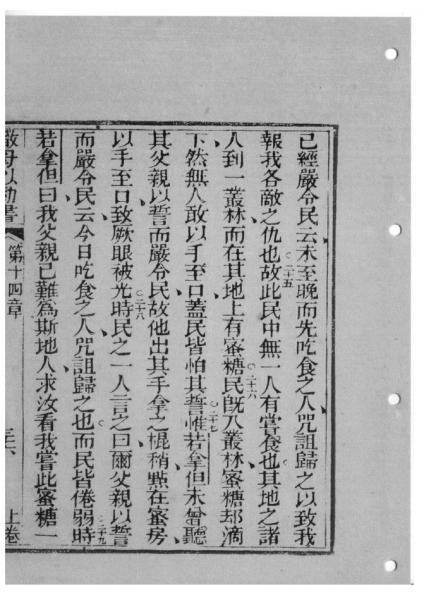 已經嚴令民云未至晚而先吃食之人咒詛歸之以致我
報我各敵之仇也故此民中無一人有嘗食也其地之諸
二十五
人到一叢林而在其地上有蜜糖民既入叢林蜜糖却滴
二十六
下然無人敢以手至口蓋民皆怕其誓惟若拿但未曾聽
二十七
其父親以誓而嚴令民故他出其手拿之棍稍點在蜜房
以手至口致厥眼被光時民之一人言之曰爾父親以誓
二十八
而嚴令民云今日吃食之人咒詛歸之也而民皆倦弱時
二十九
若拿但曰我父親已難為斯地人求汝看我嘗此蜜糖一
第十四章
上卷